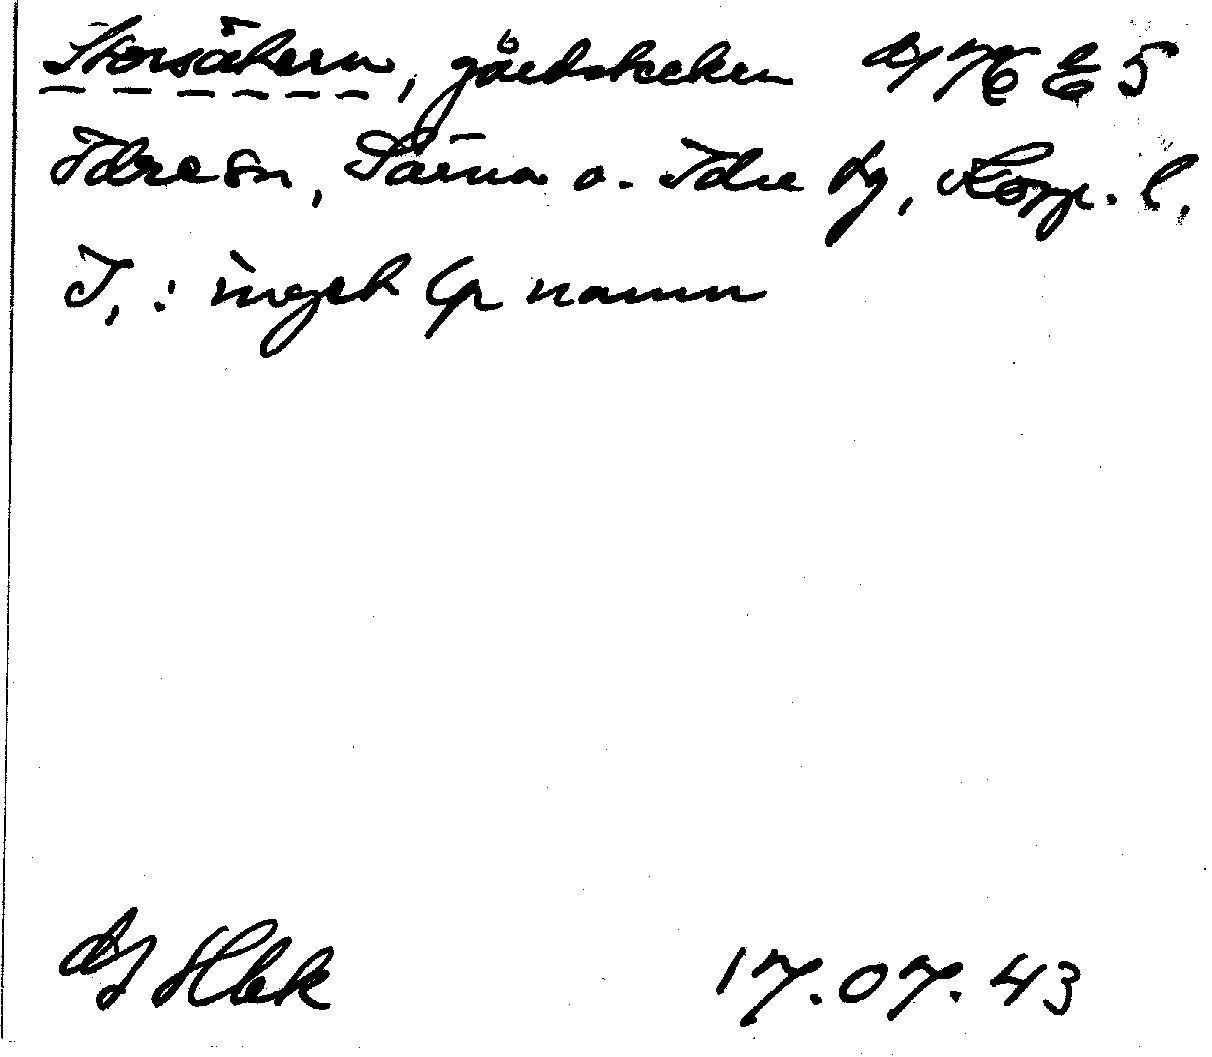 Storsäkern, gårdstecken dj 76 E 5
Idre sn, Särna o. Idre tg, Kopp. l.
I, : inget Gp namn
dj Hbk 17.07.43